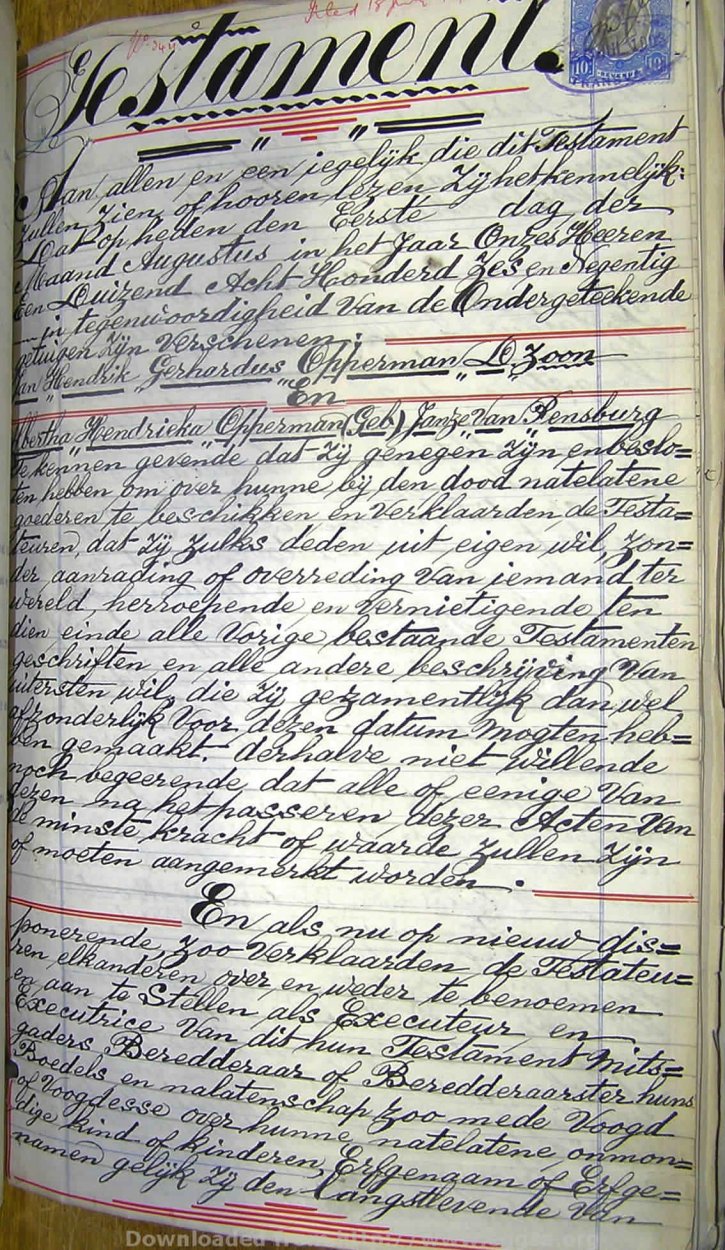 No 344
Filed 13
Testament.
10 REVENUE 10
Aan allen en een iegelijk, die dit Testament
zullen zien of hooren lezen Zij het kennelijk:
Dat op heden den Eerste dag der
Maand Augustus in het Jaar Onzes Heeren
Een Duizend Acht Honderd Zes en Negentig
in tegenwoordigheid Van de Ondergeteekende
getuigen Zijn Verschenen:
Jan Hendrik Gerhardus Opperman D. Zoon
"En"
Albertha Hendrieka Opperman (Geb) Janze Van Rensburg
te kennen gevende dat Zij genegen Zijn en beslo=
ten hebben om over hunne bij den dood natelatene
goederen te beschikken en Verklaarden de Testa=
teuren, dat Zij Zulks deden uit eigen wil, Zon=
der aanrading of overreding Van iemand ter
wereld, herroepende en Vernietigende ten
dien einde alle Vorige bestaande Testamenten
geschriften en alle andere beschrijving Van
uitersten wil, die Zij gezamentlijk dan wel
afzonderlijk Voor dezen datum Mogten heb=
ben gemaakt. derhalve niet willende
noch begeerende, dat alle of eenige Van
dezen na het passeren dezer Acten Van
de minste kracht of waarde Zullen Zijn
of moeten aangemerkt worden.
En als nu op nieuw dis=
ponerende, Zoo Verklaarden de Testateu=
ren elkanderen over en weder te benoemen
en aan te Stellen als Executeur en
Executrice Van dit hun Testament Mits=
gaders Beredderaar of Beredderaarster huns
Boedels en nalatenschap Zoo mede Voogd
of Voogdesse over hunne natelatene onmon=
dige kind of kinderen, Erfgenaam of Erfge=
namen gelijk Zij den Langstlevende Van
Downloaded from